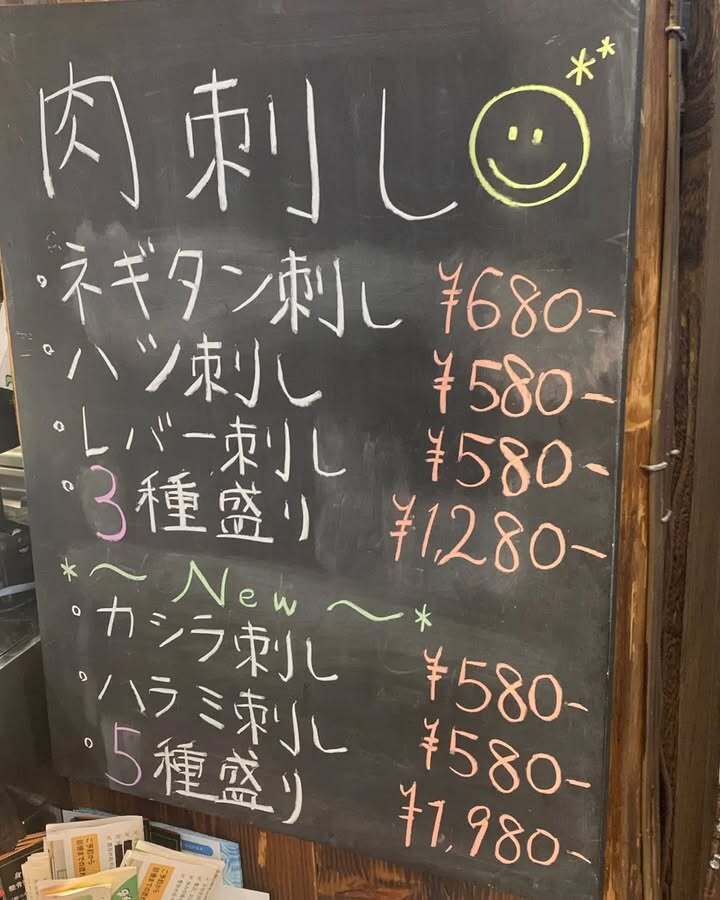 肉刺し
◦ネギタン刺し ¥680-
◦ハツ刺し ¥580-
◦レバー刺し ¥580-
◦3種盛り ¥1,280-
*〜New〜*
◦カシラ刺し ¥580-
◦ハラミ刺し ¥580-
◦5種盛り ¥1,980-